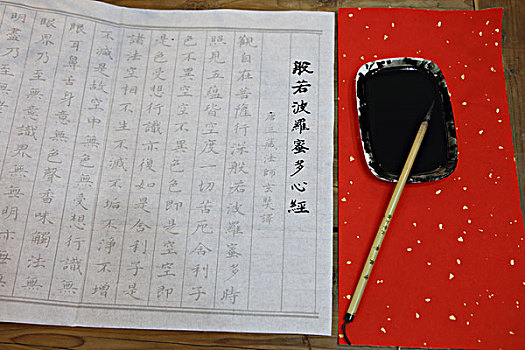 般若波羅蜜多心經
唐三藏法師玄奘譯
觀自在菩薩行深般若波羅蜜多時
照見五蘊皆空度一切苦厄舍利子
色不異空空不異色色即是空空即
是色受想行識亦復如是舍利子是
諸法空相不生不滅不垢不淨不增
不減是故空中無色無受想行識無
眼耳鼻舌身意無色聲香味觸法無
眼界乃至無意識界無無明亦無無
明盡乃至無